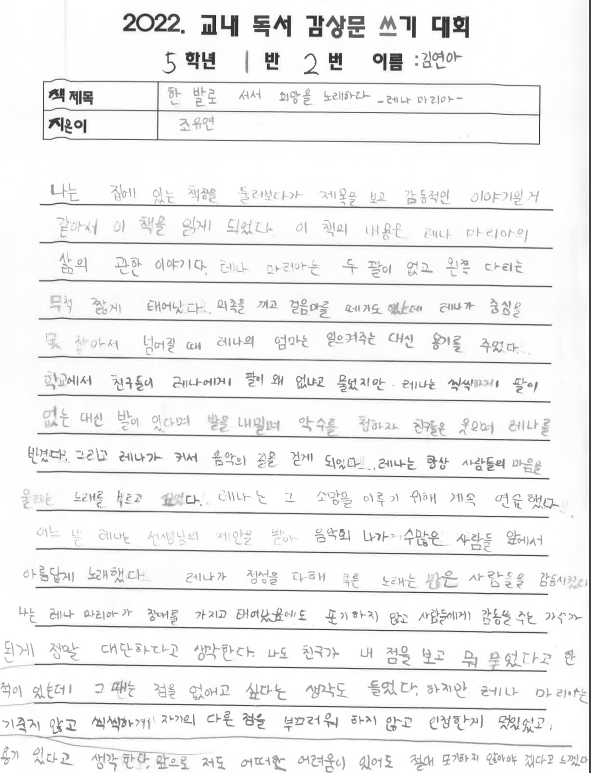 2022. 교내 독서 감상문 쓰기 대회
5 학년 1 반 2 번 이름 : 김연아
책 제목 한 발로 서서 희망을 노래하다 -레나 마리아-
지은이 조유연
나는 집에 있는 책장을 둘러보다가 제목을 보고 감동적인 이야기일 거
같아서 이 책을 읽게 되었다. 이 책의 내용은 레나 마리아의
삶의 관한 이야기다. 레나 마리아는 두 팔이 없고 왼쪽 다리는
무척 짧게 태어났다. 의족을 끼고 걸음마를 떼기도 했는데 레나가 중심을
못 잡아서 넘어질 때 레나의 엄마는 일으켜주는 대신 용기를 주었다.
학교에서 친구들이 레나에게 팔이 왜 없냐고 물었지만 레나는 씩씩하게 팔이
없는 대신 발이 있다며 발을 내밀며 악수를 청하자 친구들은 웃으며 레나를
반겼다. 그리고 레나가 커서 음악의 길을 걷게 되었다. 레나는 항상 사람들의 마음을
울리는 노래를 부르고 싶었다. 레나는 그 소망을 이루기 위해 계속 연습했다.
어느 날 레나는 선생님의 제안을 받아 음악회 나가 수많은 사람들 앞에서
아름답게 노래했다. 레나가 정성을 다해 부른 노래는 많은 사람들을 감동시켰다
나는 레나 마리아가 장애를 가지고 태어났음에도 포기하지 않고 사람들에게 감동을 주는 가수가
된게 정말 대단하다고 생각한다. 나도 친구가 내 점을 보고 뭐 묻었다고 한
적이 있는데 그 때는 점을 없애고 싶다는 생각도 들었다. 하지만 레나 마리아는
기죽지 않고 씩씩하게 자기의 다른 점을 부끄러워 하지 않고 인정한게 멋있었고,
용기 있다고 생각한다. 앞으로 저도 어떠한 어려움이 있어도 절대 포기하지 않아야 겠다고 느꼈다